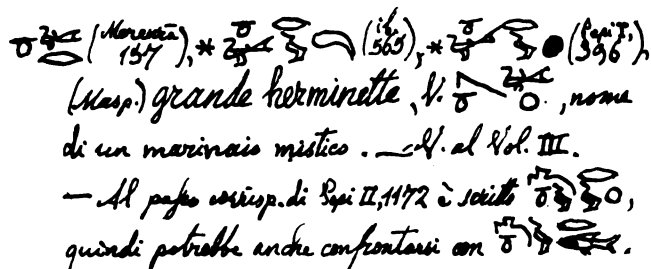 (Merenrā 157), * (ib. 565), * (Pepi I, 396),
(Masp.) grande herminette, V. , nome
di un marinaio mistico. — V. al Vol. III.
— Al passo corrisp. di Pepi II, 1172 è scritto ,
quindi potrebbe anche confrontarsi con .